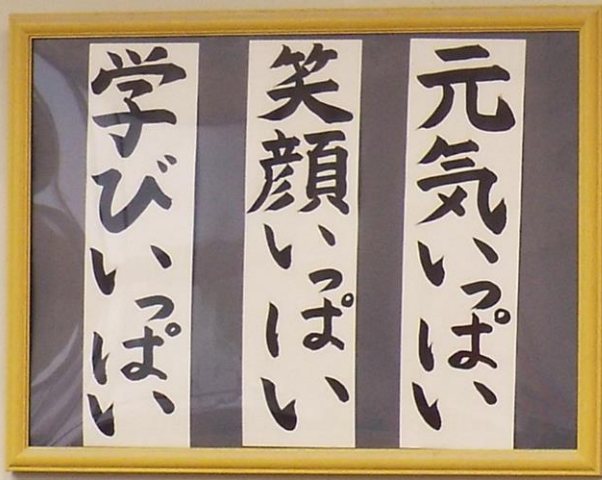 元気いっぱい
笑顔いっぱい
学びいっぱい